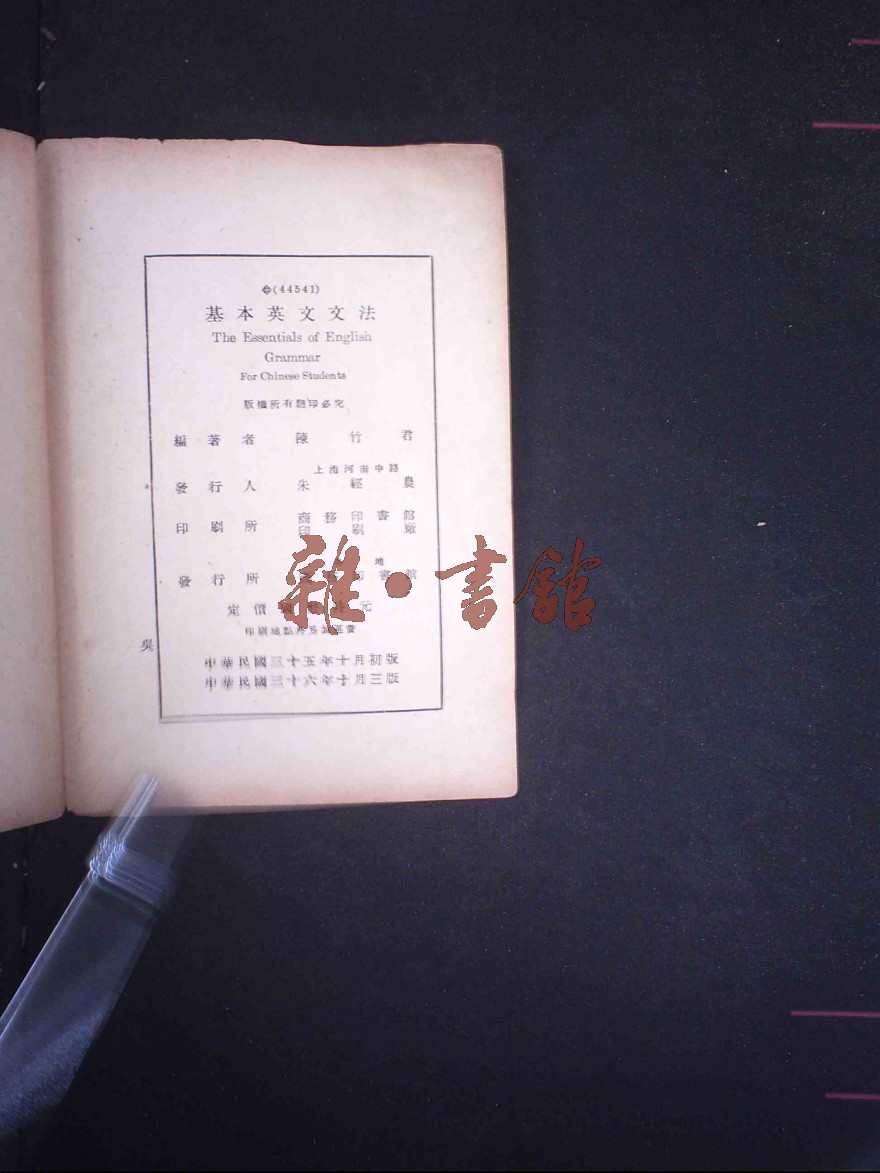 (44541)
基本英文文法
The Essentials of English
Grammar
For Chinese Students
版權所有翻印必究
編著者 陳竹君
上海河南中路
發行人 朱經農
印刷所 商務印書館
印刷廠
地
發行所 印書館
定價 元
印刷地點外另加運費
吳
中華民國三十五年十月初版
中華民國三十六年十月三版
雜·書館